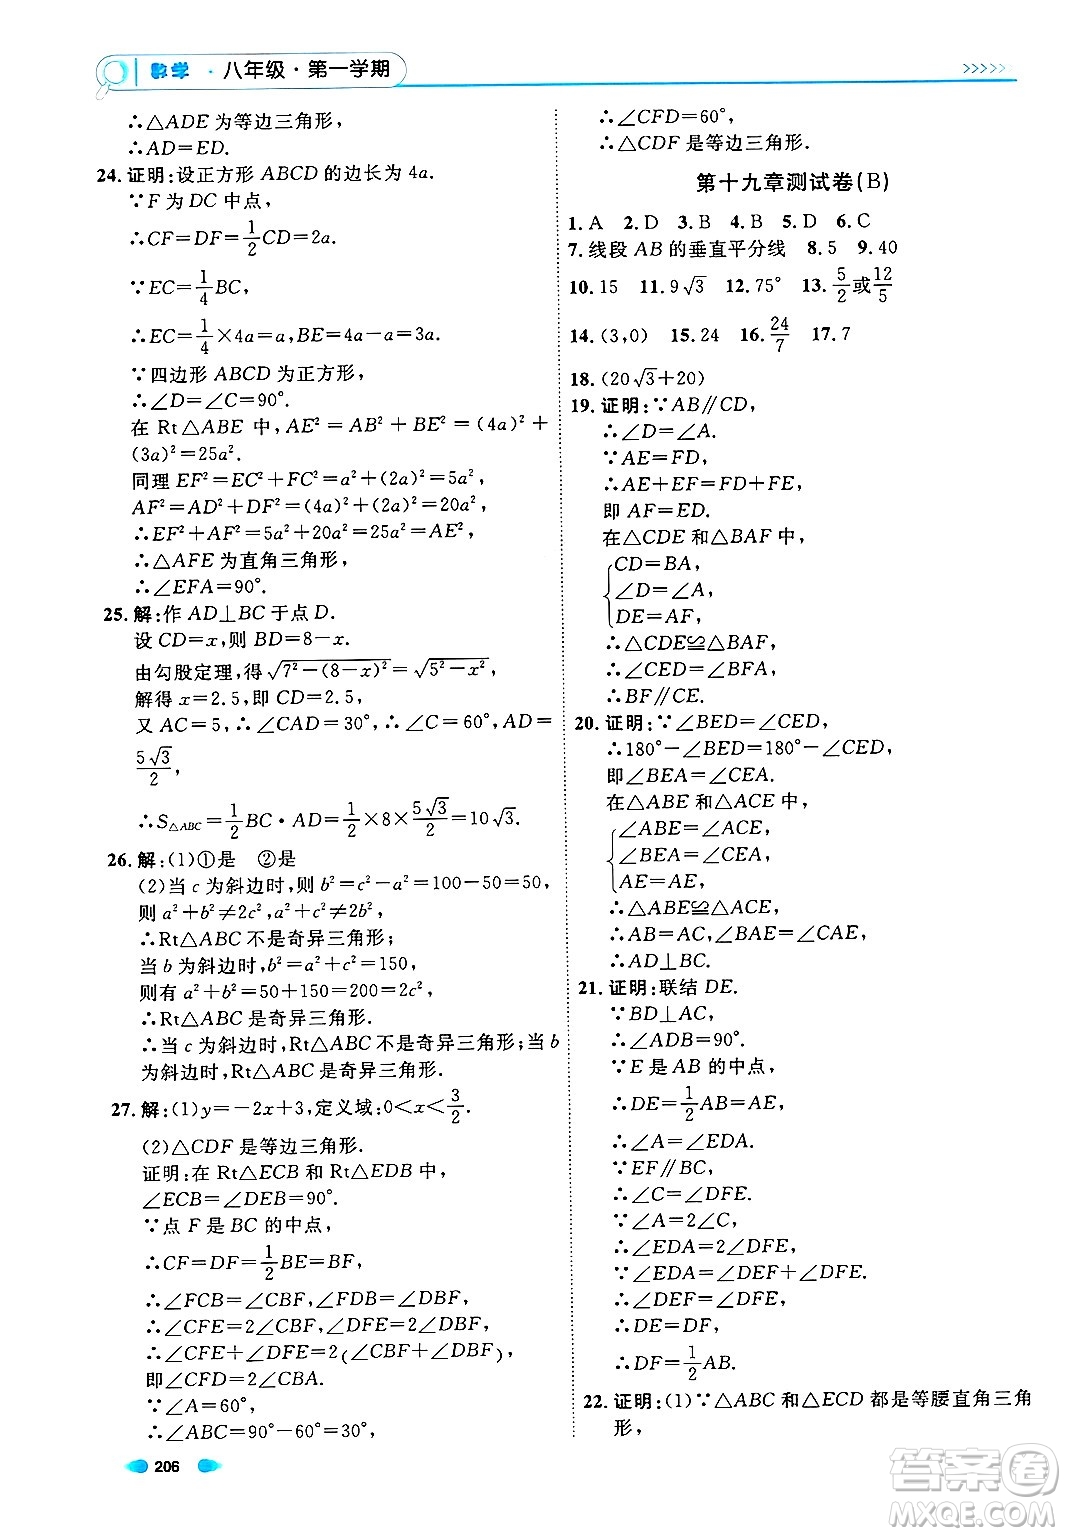 数学 · 八年级 · 第一学期
∴△ADE为等边三角形,
∴AD=ED.
24. 证明:设正方形 ABCD 的边长为 4a.
∵F 为 DC 中点,
∴CF=DF=1/2CD=2a.
∵EC=1/4BC,
∴EC=1/4×4a=a,BE=4a-a=3a.
∵四边形 ABCD 为正方形,
∴∠D=∠C=90°.
在 Rt△ABE 中,AE²=AB²+BE²=(4a)²+
(3a)²=25a².
同理 EF²=EC²+FC²=a²+(2a)²=5a²,
AF²=AD²+DF²=(4a)²+(2a)²=20a²,
∴EF²+AF²=5a²+20a²=25a²=AE²,
∴△AFE 为直角三角形,
∴∠EFA=90°.
25. 解:作 AD⊥BC 于点 D.
设 CD=x,则 BD=8-x.
由勾股定理,得√(7²-(8-x)²)=√(5²-x²),
解得 x=2.5,即 CD=2.5,
又 AC=5,∴∠CAD=30°,∴∠C=60°,AD=
5√3/2,
∴S△ABC=1/2BC·AD=1/2×8×5√3/2=10√3.
26. 解:(1)①是 ②是
(2)当 c 为斜边时,则 b²=c²-a²=100-50=50,
则 a²+b²≠2c²,a²+c²≠2b²,
∴Rt△ABC 不是奇异三角形;
当 b 为斜边时,b²=a²+c²=150,
则有 a²+b²=50+150=200=2c²,
∴Rt△ABC 是奇异三角形.
∴当 c 为斜边时,Rt△ABC 不是奇异三角形;当 b
为斜边时,Rt△ABC 是奇异三角形.
27. 解:(1)y=-2x+3,定义域:0<x<3/2.
(2)△CDF 是等边三角形.
证明:在 Rt△ECB 和 Rt△EDB 中,
∠ECB=∠DEB=90°.
∵点 F 是 BC 的中点,
∴CF=DF=1/2BE=BF,
∴∠FCB=∠CBF,∠FDB=∠DBF.
∴∠CFE=2∠CBF,∠DFE=2∠DBF,
∴∠CFE+∠DFE=2(∠CBF+∠DBF),
即∠CFD=2∠CBA.
∵∠A=60°,
∴∠ABC=90°-60°=30°,
206
∴∠CFD=60°,
∴△CDF 是等边三角形.
第十九章测试卷(B)
1. A 2. D 3. B 4. B 5. D 6. C
7. 线段 AB 的垂直平分线 8. 5 9. 40
10. 15 11. 9√3 12. 75° 13. 5/2或12/5
14. (3,0) 15. 24 16. 24/7 17. 7
18. (20√3+20)
19. 证明:∵AB∥CD,
∴∠D=∠A.
∵AE=FD,
∴AE+EF=FD+FE,
即 AF=ED.
在△CDE 和△BAF 中,
CD=BA,
∠D=∠A,
DE=AF,
∴△CDE≌△BAF,
∴∠CED=∠BFA,
∴BF∥CE.
20. 证明:∵∠BED=∠CED,
∴180°-∠BED=180°-∠CED,
即∠BEA=∠CEA.
在△ABE 和△ACE 中,
∠ABE=∠ACE,
∠BEA=∠CEA,
AE=AE,
∴△ABE≌△ACE,
∴AB=AC,∠BAE=∠CAE,
∴AD⊥BC.
21. 证明:联结 DE.
∵BD⊥AC,
∴∠ADB=90°.
∵E 是 AB 的中点,
∴DE=1/2AB=AE,
∴∠A=∠EDA.
∵EF∥BC,
∴∠C=∠DFE.
∵∠A=2∠C,
∴∠EDA=2∠DFE,
∵∠EDA=∠DEF+∠DFE.
∴∠DEF=∠DFE,
∴DE=DF,
∴DF=1/2AB.
22. 证明:(1)∵△ABC 和△ECD 都是等腰直角三角
形,
答案圈
MXQE.COM